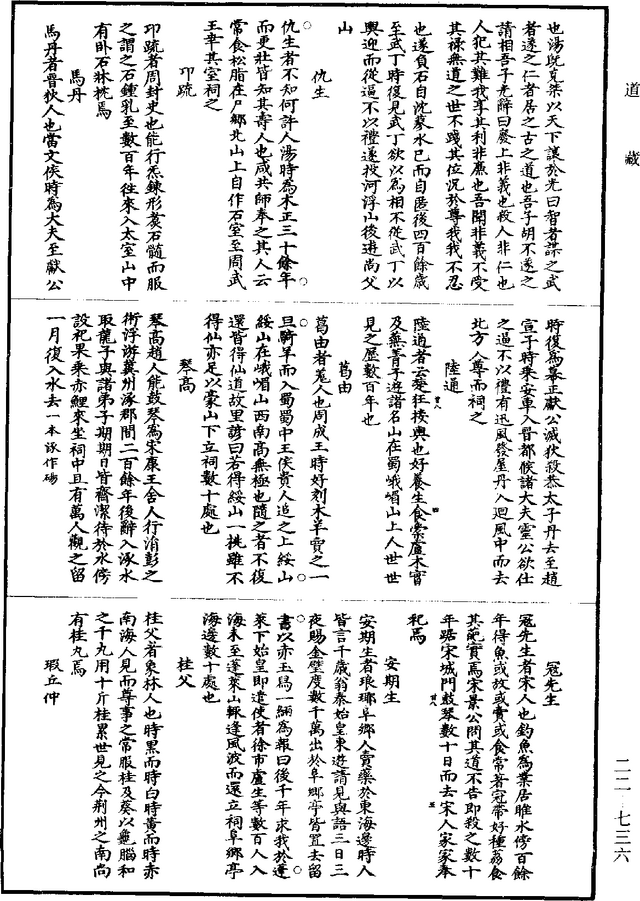 道藏
也湯既克桀以天下讓於光曰智者謀之武
者遂之仁者居之古之道也吾子胡不遂之
請相吾子光辭曰廢上非義也殺人非仁也
人犯其難我享其利非廉也吾聞非義不受
其祿無道之世不踐其位況於尊我我不忍
也遂負石自沈蓼水已而自匿後四百餘歲
至武丁時復見武丁欲以為相不從武丁以
輿迎而從逼不以禮遂投河浮山後遊尚父
山
仇生
仇生者不知何許人湯時為木正三十餘年
而更壯皆知其壽人也咸共師奉之其人云
常食松脂在尸鄉北山上自作石室至周武
王幸其室祠之
卭疏
卭疏者周封史也能行炁鍊形煑石髓而服
之謂之石鍾乳至數百年往來入太室山中
有卧石牀枕焉
馬丹
馬丹者晉狄人也當文侯時為大夫至獻公
時復為幕正獻公滅狄殺恭太子丹去至趙
宣子時乘安車入晉都候諸大夫靈公欲仕
之逼不以禮有迅風發屋丹入迴風中而去
北方人尊而祠之
陸通
陸通者云楚狂接輿也好養生食橐盧木實
及蕪菁子遊諸名山在蜀峨嵋山上人世世
見之歷數百年也
葛由
葛由者羌人也周成王時好刻木羊賣之一
旦騎羊而入蜀蜀中王侯貴人追之上綏山
綏山在峨嵋山西南高無極也隨之者不復
還皆得仙道故里諺曰若得綏山一桃雖不
得仙亦足以豪山下立祠數十處也
琴高
琴高趙人能鼓琴為宋康王舍人行涓彭之
術浮游冀州涿郡間二百餘年後辭入涿水
取龍子與諸弟子期期日皆齋潔待於水傍
設祀果乘赤鯉來坐祠中且有萬人觀之留
一月復入水去一本涿作碭
寇先生
寇先生者宋人也釣魚為業居睢水傍百餘
年得魚或放或賣或食常著冠帶好種荔食
其葩實焉宋景公問其道不告即殺之數十
年踞宋城門鼓琴數十日而去宋人家家奉
祀焉
安期生
安期生者琅琊阜鄉人賣藥於東海邊時人
皆言千歲翁秦始皇東遊請見與語三日三
夜賜金璧度數千萬出於阜鄉亭皆置去留
書以赤玉舄一緉為報曰後千年求我於蓬
萊下始皇即遣使者徐市盧生等數百人入
海未至蓬萊山輒逢風波而還立祠阜鄉亭
海邊數十處也
桂父
桂父者象林人也時黑而時白時黃而時赤
南海人見而尊事之常服桂及葵以龜腦和
之千丸用十斤桂累世見之今荊州之南尚
有桂丸焉
瑕丘仲
二二 七三六